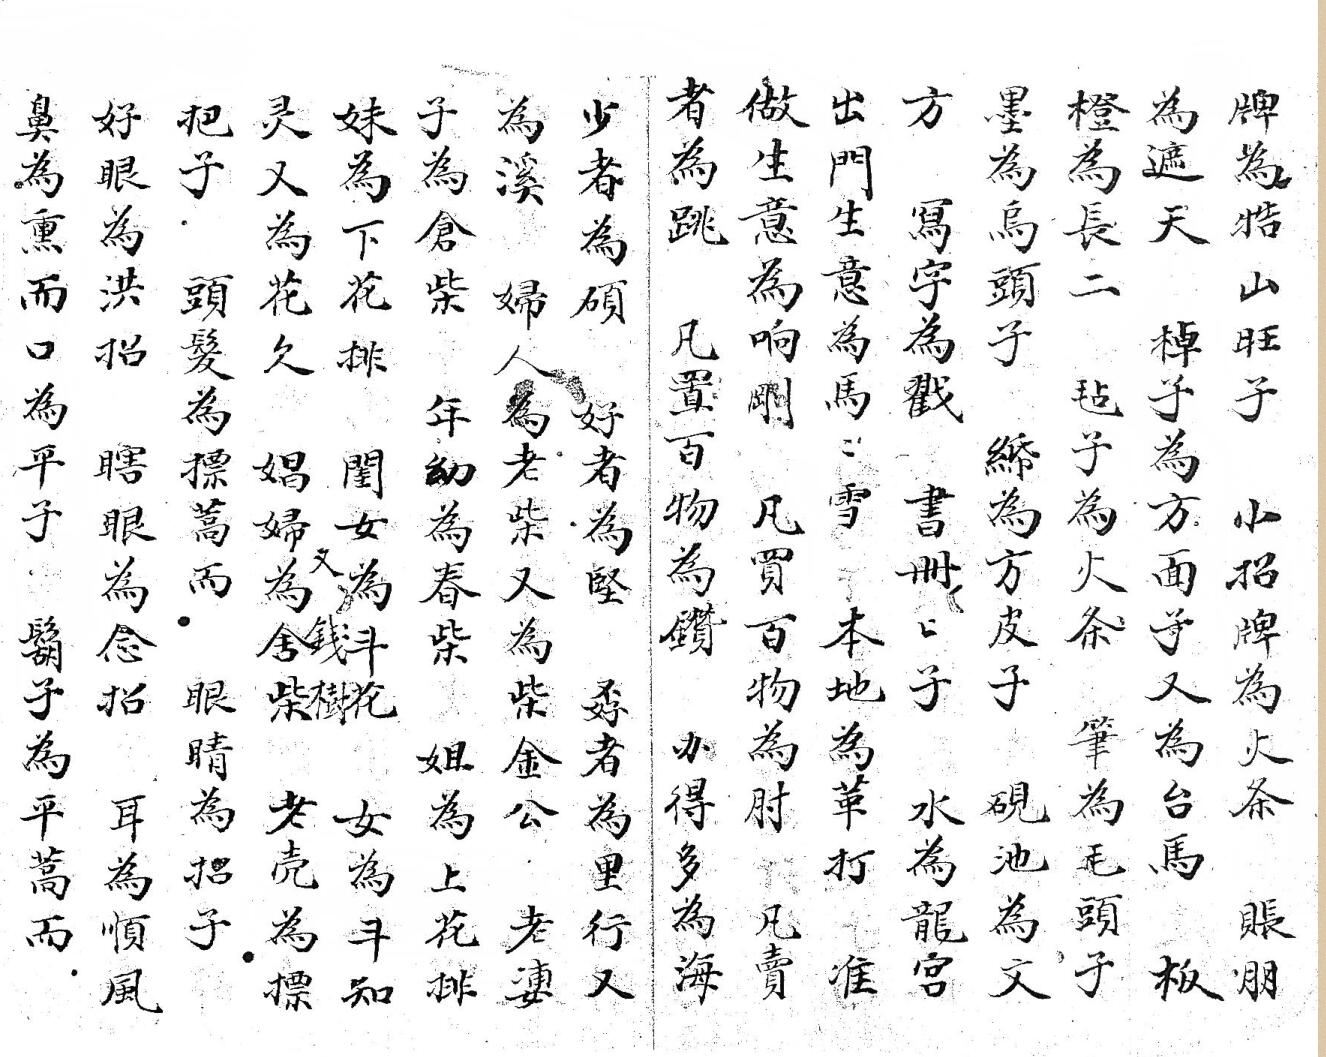 牌為牿山旺子　小招牌為火条　賬朋
為遮天　棹子為方面子又為台馬　板
橙為長二　毡子為火条　筆為毛頭子
墨為烏頭子　為方皮子　硯池為文
方　寫字為戳　書冊為〻子　水為龍宮
出門生意為馬〻雪　本地為草打　准
做生意為响剛　凡買百物為肘　凡賣
者為跳　凡置百物為鑽　办得多為海
少者為碩　好者為堅　孬者為里行又
為溪　婦人為老柴又為柴金公　老妻
子為倉柴　年幼為春柴　姐為上花排
妹為下花排　閨女為斗花又錢樹　女為斗知
灵又為花欠　娼婦為舍柴　老壳為摽
把子　頭髮為摽蒿而　眼睛為招子
好眼為洪招　瞎眼為念招　耳為順風
鼻為熏而口為平子　鬍子為平蒿而